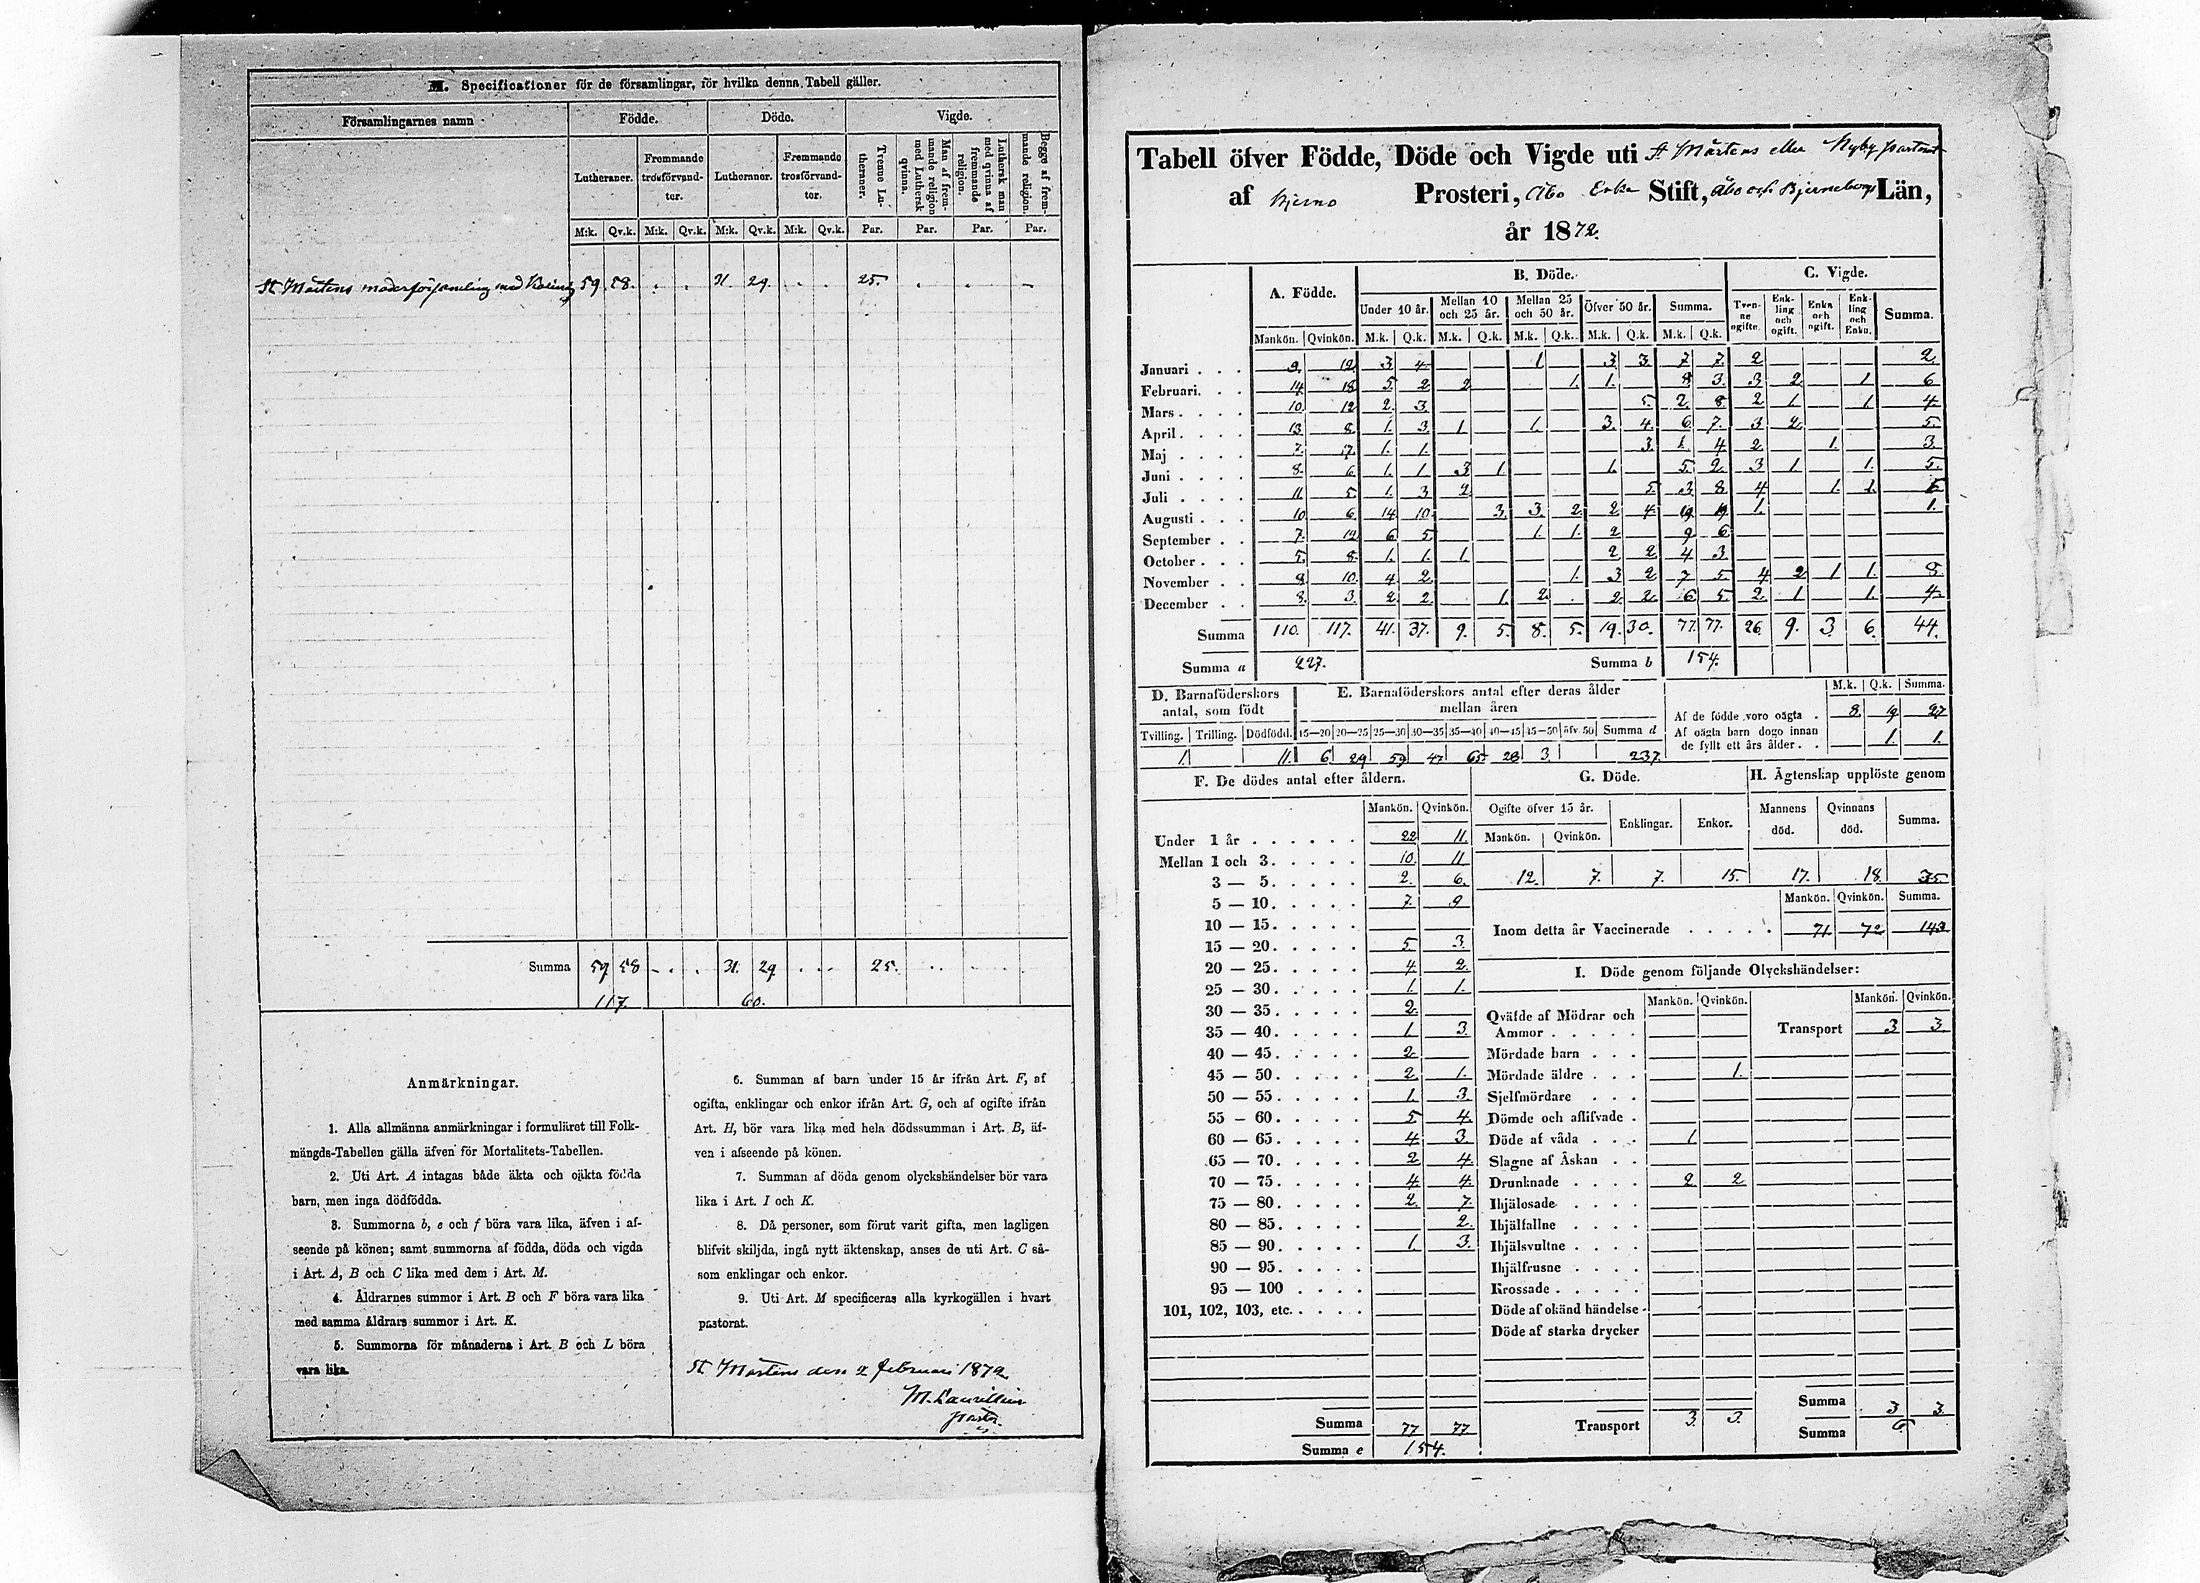 M. Specificationer för de församlingar, för hvilka denna Tabell gäller.
Församlingarnes namn
Födde.
Döde.
Vigde.
Lutheraner.
Fremmande trosförvandter.
Lutheraner.
Fremmande trosförvandter.
Tvenne Lutheraner.
Man af fremmande religion med Luthersk qvinna.
Luthersk man med qvinna af fremmande religion.
Begge af fremmande religion.
M:k. Qv.k. M:k. Qv.k. M:k. Qv.k. M:k. Qv.k. Par. Par. Par. Par.
St Mårtens moderförsamling med 59 58 . . 31 29 . . 25. . . –
Summa 59 58 - . . 31. 29 . .. 25.
117. 60.
Anmärkningar.
1. Alla allmänna anmärkningar i formuläret till Folk-
mängds-Tabellen gälla äfven för Mortalitets-Tabellen.
2. Uti Art. A intagas både äkta och oäkta födda
barn, men inga dödfödda.
3. Summorna b, e och f böra vara lika, äfven i af-
seende på könen; samt summorna af födda, döda och vigda
i Art. A, B och C lika med dem i Art. M.
4. Åldrarnes summor i Art. B och F böra vara lika
med samma åldrars summor i Art. K.
5. Summorna för månaderna i Art. B och L böra
vara lika.
6. Summan af barn under 15 år ifrån Art. F, af
ogifta, enklingar och enkor ifrån Art. G, och af ogifte ifrån
Art. H, bör vara lika med hela dödssumman i Art. B, äf-
ven i afseende på könen.
7. Summan af döda genom olyckshändelser bör vara
lika i Art. I och K.
8. Då personer, som förut varit gifta, men lagligen
blifvit skiljda, ingå nytt äktenskap, anses de uti Art. C så-
som enklingar och enkor.
9. Uti Art. M specificeras alla kyrkogällen i hvart
pastorat.
St Mårtens den 2 februari 1872
M. Laurellius
pastor.
Tabell öfver Födde, Döde och Vigde uti St Mårtens eller Nyby pastorat
af Kjimo Prosteri, Åbo Erke Stift, Åbo och Bjerneborgs Län,
år 1872.
A. Födde.
B. Döde.
C. Vigde.
Under 10 år. Mellan 10 och 25 år. Mellan 25 och 50 år. Öfver 50 år. Summa.
Tvenne ogifte. Enkling och ogift. Enka och ogift. Enkling och Enka. Summa.
Mankön. Qvinkön. M.k. Q.k. M.k. Q.k. M.k. Q.k. M.k. Q.k. M.k. Q.k.
Januari . . . 9. 12 3 4 1 3 3. 7 7. 2 2
Februari. . . 14 18 5 2 2 1. 1. 8 3. 3 2 1 6
Mars . . . . 10. 12 2. 3. 5. 2. 8 2 1 1 4
April . . . . 13 8. 1. 3. 1 1. 3. 4. 6 7. 3 2 5.
Maj . . . . 7. 17. 1. 1. 3. 1. 4 2. 1. 3.
Juni . . . . 8. 6 1. 1 3 1. 1. 5. 2. 3 1 1. 5.
Juli . . . . 11 5. 1. 3 2 5 3. 8 4 1. 1. 6
Augusti . . . 10 6 14 10. 3. 3. 2. 2 4. 19 19 1. 1.
September . . 7. 12 6 5 1. 1. 2 9 6
October . . . 5. 8. 1. 1. 1. 2 2 4 3.
November . . 8 10. 4 2 1. 3 2 7 5. 4 2 1 1. 8.
December . . 8. 3. 2. 2 1. 2. 2 2. 6 5. 2. 1 1. 4
Summa 110. 117. 41. 37. 9. 5. 8. 5. 19. 30. 77. 77. 26 9. 3 6. 44.
Summa a 227. Summa b 154.
D. Barnaföderskors antal, som födt
E. Barnaföderskors antal efter deras ålder mellan åren
M.k. Q.k. Summa.
Af de födde voro oägta . 8. 19 27
Af oägta barn dogo innan
de fyllt ett års ålder . . 1. 1.
Tvilling. Trilling. Dödfödd. 15—20 20—25 25—30 30—35 35—40 40—45 45—50 öfv. 50 Summa d
1. 11. 6 29 59 47 65. 28 3. 237.
F. De dödes antal efter åldern.
Mankön. Qvinkön.
Under 1 år . . . . . . 22 11.
Mellan 1 och 3. . . . . 10. 11
3 — 5. . . . . 2. 6.
5 — 10. . . . . 7. 9
10 — 15. . . . .
15 — 20. . . . . 5 3.
20 — 25. . . . . 4. 2.
25 — 30. . . . . 1. 1.
30 — 35. . . . . 2.
35 — 40. . . . . 1 3.
40 — 45. . . . . 2.
45 — 50. . . . . 2 1.
50 — 55. . . . . 1 3
55 — 60. . . . . 5 4.
60 — 65. . . . . 4 3.
65 — 70. . . . . 2 4.
70 — 75. . . . . 4 4
75 — 80. . . . . 2. 7.
80 — 85. . . . . 2.
85 — 90. . . . . 1. 3.
90 — 95. . . . .
95 — 100 . . . .
101, 102, 103, etc. . . . .
Summa 77 77
Summa e 154.
G. Döde.
Ogifte öfver 15 år. Enklingar. Enkor.
Mankön. Qvinkön.
12. 7. 7. 15.
H. Ägtenskap upplöste genom
Mannens död. Qvinnans död. Summa.
17. 18. 35.
Mankön. Qvinkön. Summa.
Inom detta år Vaccinerade . . . . . 71. 72 143
I. Döde genom följande Olyckshändelser:
Mankön. Qvinkön. Mankön. Qvinkön.
Qväfde af Mödrar och
Ammor . . . . .
Transport 3 3.
Mördade barn . . .
Mördade äldre . . . 1.
Sjelfmördare . . .
Dömde och aflifvade .
Döde af våda . . . 1
Slagne af Åskan . .
Drunknade . . . . 2. 2
Ihjälosade . . . .
Ihjälfallne . . . .
Ihjälsvultne . . . .
Ihjälfrusne . . . .
Krossade . . . . .
Döde af okänd händelse .
Döde af starka drycker
Transport 3. 3.
Summa 3 3.
Summa 6